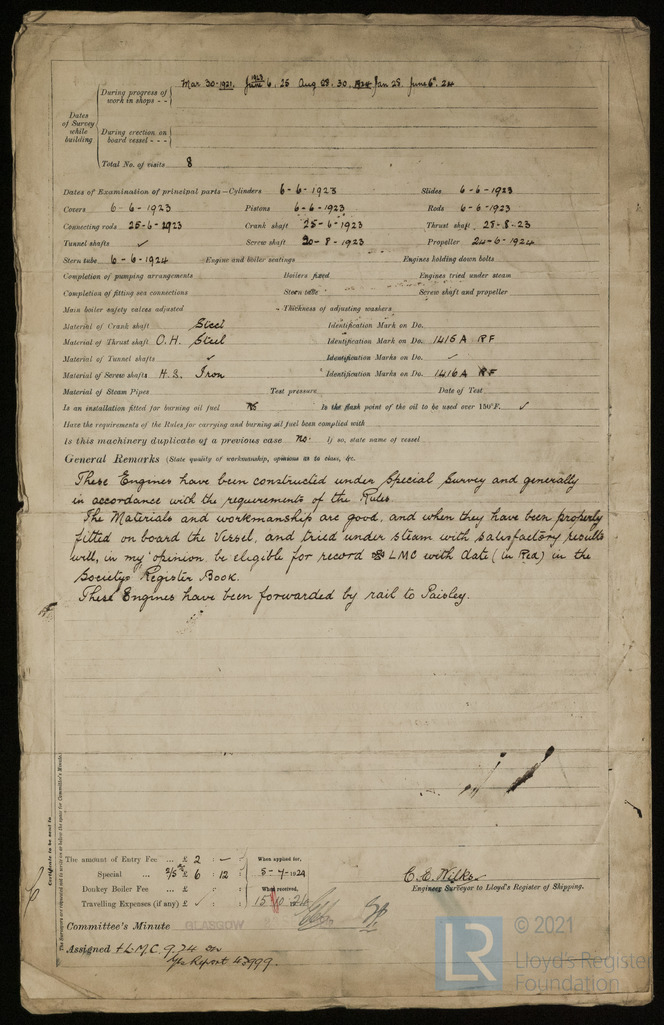 Dates of Survey while building
During progress of work in shops - - Mar 30-1921. 1923 June 6, 25 Aug 28. 30. 1924 Jan 28. June 6th. 24
During erection on board vessel - - -
Total No. of visits 8
Dates of Examination of principal parts—Cylinders 6-6-1923 Slides 6-6-1923
Covers 6-6-1923 Pistons 6-6-1923 Rods 6-6-1923
Connecting rods 25-6-1923 Crank shaft 25-6-1923 Thrust shaft 28-8-23
Tunnel shafts ✓ Screw shaft 30-8-1923 Propeller 24-6-1924
Stern tube 6-6-1924 Engine and boiler seatings Engines holding down bolts
Completion of pumping arrangements Boilers fixed Engines tried under steam
Completion of fitting sea connections Stern tube Screw shaft and propeller
Main boiler safety valves adjusted Thickness of adjusting washers
Material of Crank shaft Steel Identification Mark on Do.
Material of Thrust shaft O.H. Steel Identification Mark on Do. 1415A RF
Material of Tunnel shafts ✓ Identification Marks on Do. ✓
Material of Screw shafts H.S. Iron Identification Marks on Do. 1416A RF
Material of Steam Pipes Test pressure Date of Test
Is an installation fitted for burning oil fuel No Is the flash point of the oil to be used over 150°F. ✓
Have the requirements of the Rules for carrying and burning oil fuel been complied with
Is this machinery duplicate of a previous case No. If so, state name of vessel
General Remarks (State quality of workmanship, opinions as to class, &c.
These Engines have been constructed under Special Survey and generally
in accordance with the requirements of the Rules.
The Materials and workmanship are good, and when they have been properly
fitted on board the Vessel, and tried under steam with satisfactory results
will, in my opinion be eligible for record LMC with date (in Red) in the
Society's Register Book.
These Engines have been forwarded by rail to Paisley.
Certificate to be sent to
The Surveyors are requested not to write on or below the space for Committee's Minute.
The amount of Entry Fee ... £ 2 : - : When applied for,
Special ... £ 6 : 12 : 5-7-1924
Donkey Boiler Fee ... £ : : When received,
Travelling Expenses (if any) £ ✓ : : 15 10 24
C. E. Wilkes
Engineer Surveyor to Lloyd's Register of Shipping.
Committee's Minute GLASGOW
Assigned + L.M.C. 9,24 on
Gls Report 43999.
LR
© 2021
Lloyd's Register
Foundation